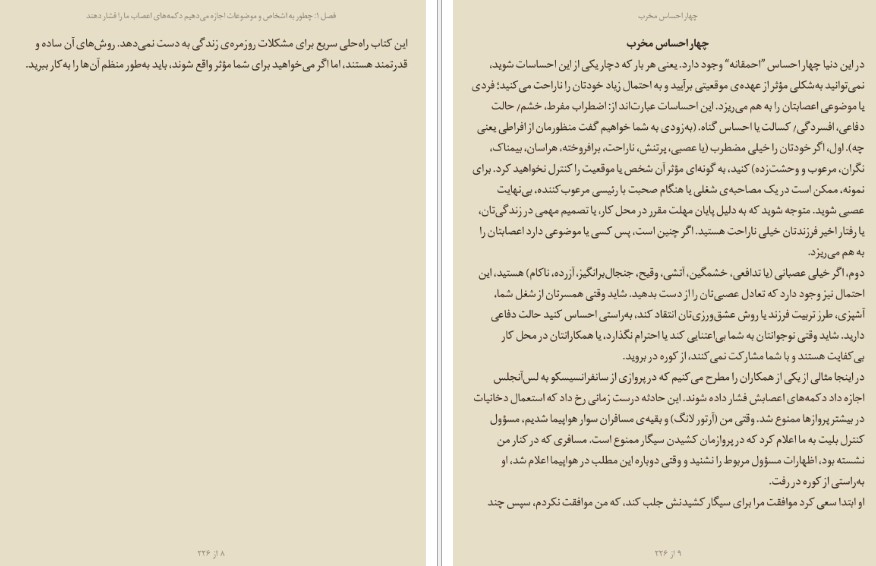 فصل ۱: چطور به اشخاص و موضوعات اجازه می‌دهیم دکمه‌های اعصاب ما را فشار دهند
این کتاب راه‌حلی سریع برای مشکلات روزمره‌ی زندگی به دست نمی‌دهد. روش‌های آن ساده و
قدرتمند هستند، اما اگر می‌خواهید برای شما مؤثر واقع شوند، باید به‌طور منظم آن‌ها را به‌کار ببرید.
۸ از ۲۲۶
چهار احساس مخرب
چهار احساس مخرب
در این دنیا چهار احساس ”احمقانه“ وجود دارد. یعنی هر بار که دچار یکی از این احساسات شوید،
نمی‌توانید به‌شکلی مؤثر از عهده‌ی موقعیتی برآیید و به احتمال زیاد خودتان را ناراحت می‌کنید؛ فردی
یا موضوعی اعصابتان را به هم می‌ریزد. این احساسات عبارت‌اند از: اضطراب مفرط، خشم/ حالت
دفاعی، افسردگی/ کسالت یا احساس گناه. (به‌زودی به شما خواهیم گفت منظورمان از افراطی یعنی
چه). اول، اگر خودتان را خیلی مضطرب (یا عصبی، پرتنش، ناراحت، برافروخته، هراسان، بیمناک،
نگران، مرعوب و وحشت‌زده) کنید، به گونه‌ای مؤثر آن شخص یا موقعیت را کنترل نخواهید کرد. برای
نمونه، ممکن است در یک مصاحبه‌ی شغلی یا هنگام صحبت با رئیسی مرعوب‌کننده، بی‌نهایت
عصبی شوید. متوجه شوید که به دلیل پایان مهلت مقرر در محل کار، یا تصمیم مهمی در زندگی‌تان،
یا رفتار اخیر فرزندتان خیلی ناراحت هستید. اگر چنین است، پس کسی یا موضوعی دارد اعصابتان را
به هم می‌ریزد.
دوم، اگر خیلی عصبانی (یا تدافعی، خشمگین، آتشی، وقیح، جنجال‌برانگیز، آزرده، ناکام) هستید، این
احتمال نیز وجود دارد که تعادل عصبی‌تان را از دست بدهید. شاید وقتی همسرتان از شغل شما،
آشپزی، طرز تربیت فرزند یا روش عشق‌ورزی‌تان انتقاد کند، به‌راستی احساس کنید حالت دفاعی
دارید. شاید وقتی نوجوانتان به شما بی‌اعتنایی کند یا احترام نگذارد، یا همکارانتان در محل کار
بی‌کفایت هستند و با شما مشارکت نمی‌کنند، از کوره در بروید.
در اینجا مثالی از یکی از همکاران را مطرح می‌کنیم که در پروازی از سانفرانسیسکو به لس‌آنجلس
اجازه داد دکمه‌های اعصابش فشار داده شوند. این حادثه درست زمانی رخ داد که استعمال دخانیات
در بیشتر پروازها ممنوع شد. وقتی من (آرتور لانگ) و بقیه‌ی مسافران سوار هواپیما شدیم، مسؤول
کنترل بلیت به ما اعلام کرد که در پروازمان کشیدن سیگار ممنوع است. مسافری که در کنار من
نشسته بود، اظهارات مسؤول مربوط را نشنید و وقتی دوباره این مطلب در هواپیما اعلام شد، او
به‌راستی از کوره در رفت.
او ابتدا سعی کرد موافقت مرا برای سیگار کشیدنش جلب کند، که من موافقت نکردم، سپس چند
۹ از ۲۲۶